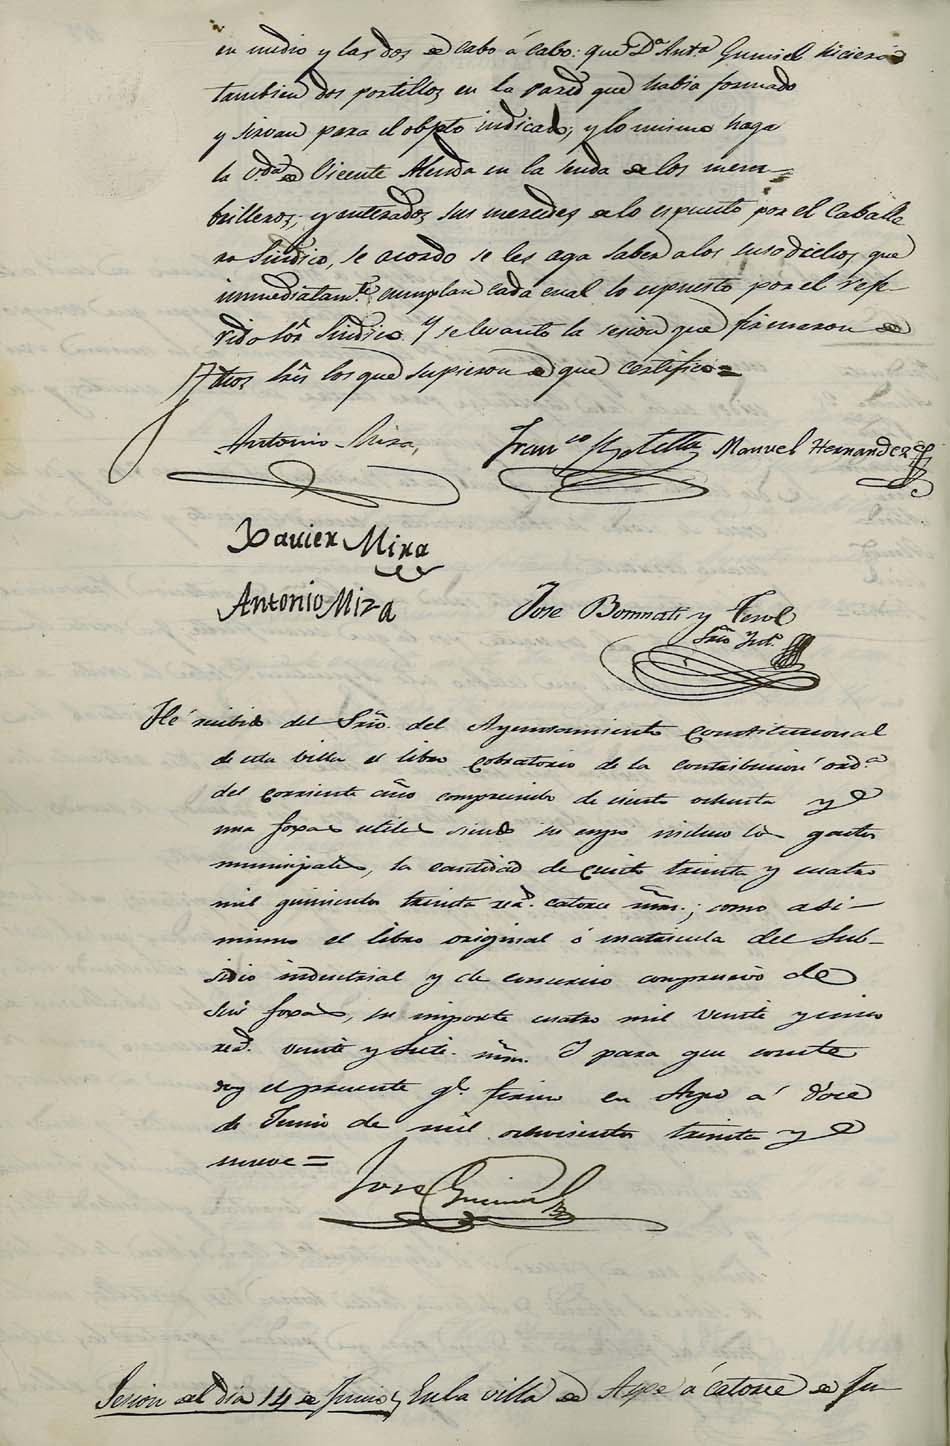 en medio y las dos de cabo á cabo: que Dª Antª Gumiel hiciera
tambien dos portillos en la pared que habia formado
y sirvan para el objeto indicado, y lo mismo haga
la Vdª de Vicente Merida en la senda de los mem-
brilleros; y enterados sus mercedes de lo espuesto por el Caballe
ro Sindico, se acordo se les aga saber a los susodichos que
immediatamte cumplan cada cual lo espuesto por el refe-
rido Sor Sindico. Y se levanto la sesion que firmaron
dhos Sres los que supieron de que certifico=
Antonio Mira,
Franco Manuel Hernandez
Xavier Mira
Antonio Mira
Jose Bonmati y Terol
Srio Intº
Hé recibido del Srio. del Ayuntamiento Constitucional
de esta villa el libro cobratorio de la contribucion ordª
del corriente año comprensivo de ciento ochenta y
una foxas utiles siendo su cargo incluso los gastos
municipales, la cantidad de ciento treinta y cuatro
mil quinientos treinta reas. catorce mrs.; como asi-
mismo el libro original ó matricula del Sub-
sidio industrial y de comercio compresivo de
seis foxas, su importe cuatro mil veinte y cinco
reas. veinte y siete mrs. Y para que conste
doy el presente qe. firmo en Aspe á doce
de Junio de mil ochocientos treinta y
nueve=
Jose
Sesion del dia 14 de Junio, En la villa de Aspe á catorce de Ju-